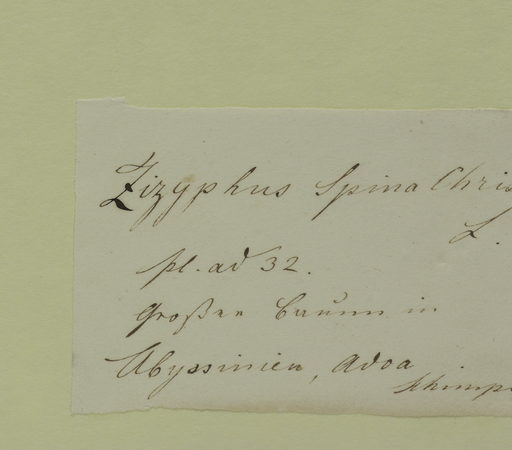 Zizyphus Spina Chris
L.
pl. ad 32.
Großer Baum in
Abyssinien, Adoa
Schimpe